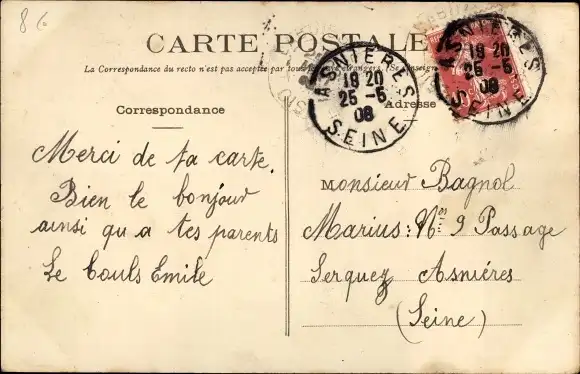 86
CARTE POSTALE
La Correspondance du recto n'est pas acceptée par tous
Correspondance
Adresse
ASNIERES
18 20
25 -5
08
SEINE
ASNIERES
18 20
25 -5
08
SEINE
Merci de ta carte.
Bien le bonjour
ainsi qu a tes parents
Le Couls Emile
Monsieur Bagnol
Marius: N° 9 Passage
Serquez Asniéres
(Seine)